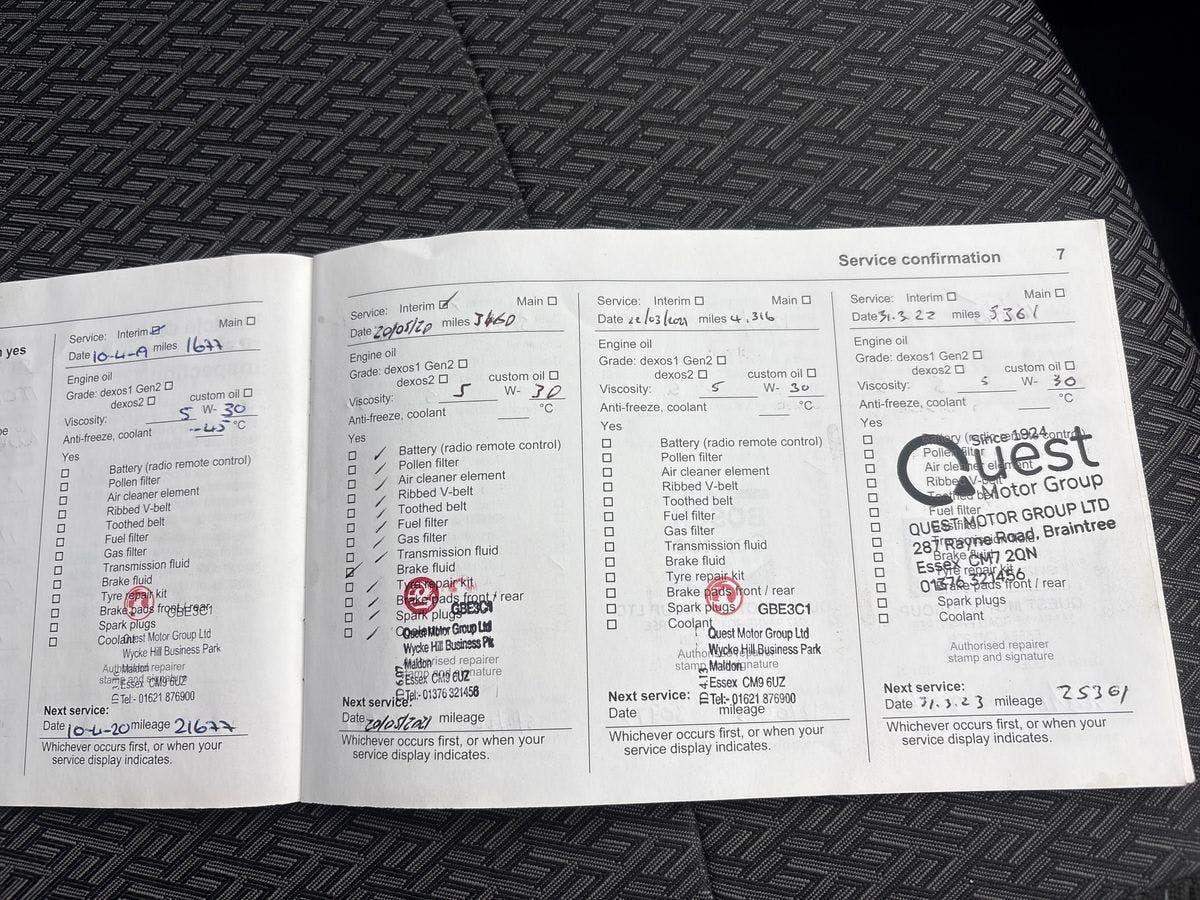 Service confirmation 7
n yes
Service: Interim ☑ Main ☐
Date 10-4-19 miles 1677
Engine oil
Grade: dexos1 Gen2 ☐
dexos2 ☐ custom oil ☐
Viscosity: 5 W- 30
Anti-freeze, coolant -45 °C
Yes
☐ Battery (radio remote control)
☐ Pollen filter
☐ Air cleaner element
☐ Ribbed V-belt
☐ Toothed belt
☐ Fuel filter
☐ Gas filter
☐ Transmission fluid
☐ Brake fluid
☐ Tyre repair kit
☐ Brake pads front / rear
☐ Spark plugs
☐ Coolant
GBE3C1
Quest Motor Group Ltd
Wycke Hill Business Park
Maldon
Essex CM9 6UZ
Tel:- 01621 876900
Authorised repairer
stamp and signature
Next service:
Date 10-4-20 mileage 21677
Whichever occurs first, or when your
service display indicates.
Service: Interim ☑ Main ☐
Date 20/05/20 miles 3460
Engine oil
Grade: dexos1 Gen2 ☐
dexos2 ☐ custom oil ☐
Viscosity: 5 W- 30
Anti-freeze, coolant °C
Yes
Battery (radio remote control)
Pollen filter
Air cleaner element
Ribbed V-belt
Toothed belt
Fuel filter
Gas filter
Transmission fluid
Brake fluid
Tyre repair kit
Brake pads front / rear
Spark plugs
Coolant
GBE3C1
Quest Motor Group Ltd
Wycke Hill Business Pk
Maldon
Essex CM9 6UZ
Tel:- 01376 321456
Authorised repairer
stamp and signature
Next service:
Date 20/05/2021 mileage
Whichever occurs first, or when your
service display indicates.
Service: Interim ☐ Main ☐
Date 22/03/2021 miles 4.316
Engine oil
Grade: dexos1 Gen2 ☐
dexos2 ☐ custom oil ☐
Viscosity: 5 W- 30
Anti-freeze, coolant °C
Yes
☐ Battery (radio remote control)
☐ Pollen filter
☐ Air cleaner element
☐ Ribbed V-belt
☐ Toothed belt
☐ Fuel filter
☐ Gas filter
☐ Transmission fluid
☐ Brake fluid
☐ Tyre repair kit
☐ Brake pads front / rear
☐ Spark plugs
☐ Coolant
GBE3C1
Quest Motor Group Ltd
Wycke Hill Business Park
Maldon
Essex CM9 6UZ
Tel:- 01621 876900
Authorised repairer
stamp and signature
Next service:
Date mileage
Whichever occurs first, or when your
service display indicates.
Service: Interim ☐ Main ☐
Date 31.3.22 miles 5361
Engine oil
Grade: dexos1 Gen2 ☐
dexos2 ☐ custom oil ☐
Viscosity: 5 W- 30
Anti-freeze, coolant °C
Yes
☐ Battery (radio remote control)
☐ Pollen filter
☐ Air cleaner element
☐ Ribbed V-belt
☐ Toothed belt
☐ Fuel filter
☐ Gas filter
☐ Transmission fluid
☐ Brake fluid
☐ Tyre repair kit
☐ Brake pads front / rear
☐ Spark plugs
☐ Coolant
Since 1924
Quest
Motor Group
QUEST MOTOR GROUP LTD
287 Rayne Road, Braintree
Essex CM7 2QN
01376 321456
Authorised repairer
stamp and signature
Next service:
Date 31.3.23 mileage 25361
Whichever occurs first, or when your
service display indicates.